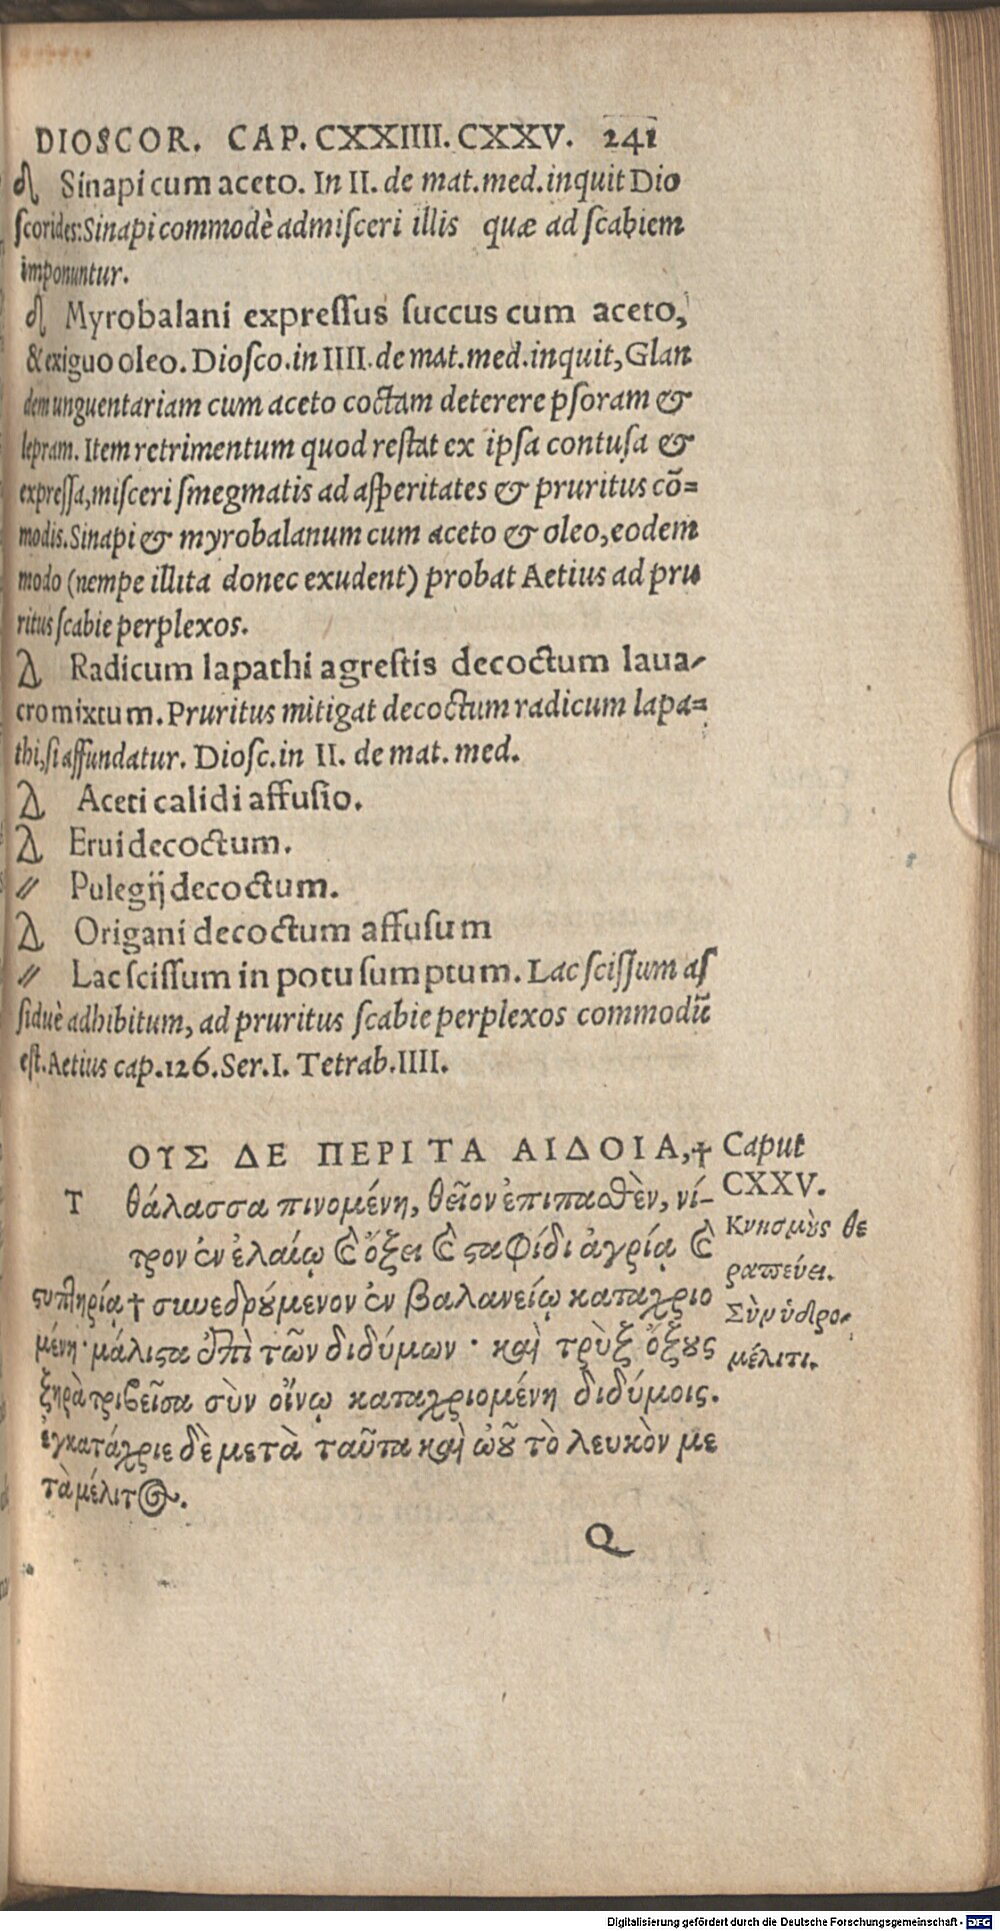 DIOSCOR. CAP. CXXIIII. CXXV. 241
Sinapi cum aceto. In II. de mat. med. inquit Dio
scorides: Sinapi commodè admisceri illis quæ ad scabiem
imponuntur.
Myrobalani expressus succus cum aceto,
& exiguo oleo. Diosco. in IIII. de mat. med. inquit, Glan
dem unguentariam cum aceto coctam deterere psoram &
lepram. Item retrimentum quod restat ex ipsa contusa &
expressa, misceri smegmatis ad asperitates & pruritus cō=
modis. Sinapi & myrobalanum cum aceto & oleo, eodem
modo (nempe illita donec exudent) probat Aetius ad pru
ritus scabie perplexos.
Radicum lapathi agrestis decoctum laua-
cro mixtum. Pruritus mitigat decoctum radicum lapa=
thi, si affundatur. Diosc. in II. de mat. med.
Aceti calidi affusio.
Erui decoctum.
〃 Pulegij decoctum.
Origani decoctum affusum
〃 Lac scissum in potu sumptum. Lac scissum as
siduè adhibitum, ad pruritus scabie perplexos commodū
est. Aetius cap. 126. Ser. I. Tetrab. IIII.
ΟΥΣ ΔΕ ΠΕΡΙ ΤΑ ΑΙΔΟΙΑ, †
Caput
CXXV.
Τ θάλασσα πινομένη, θεῖον ἐπιπασθὲν, νί-
τρον ἐν ἐλαίῳ καὶ ὄξει καὶ σταφίδι ἀγρίᾳ καὶ
στυπτηρίᾳ † συνεδρούμενον ἐν βαλανείῳ καταχριο
μένη· μάλιστα ἐπὶ τῶν διδύμων · καὶ τρὺξ ὄξους
ξηρὰ τριβεῖσα σὺν οἴνῳ καταχριομένη διδύμοις.
ἐγκατάχριε δὲ μετὰ ταῦτα καὶ ὠοῦ τὸ λευκὸν με
τὰ μέλιτος.
Κνησμὺς θε
ραπεύει.
Σὺν ὑδρο-
μέλιτι.
Q
Digitalisierung gefördert durch die Deutsche Forschungsgemeinschaft - DFG